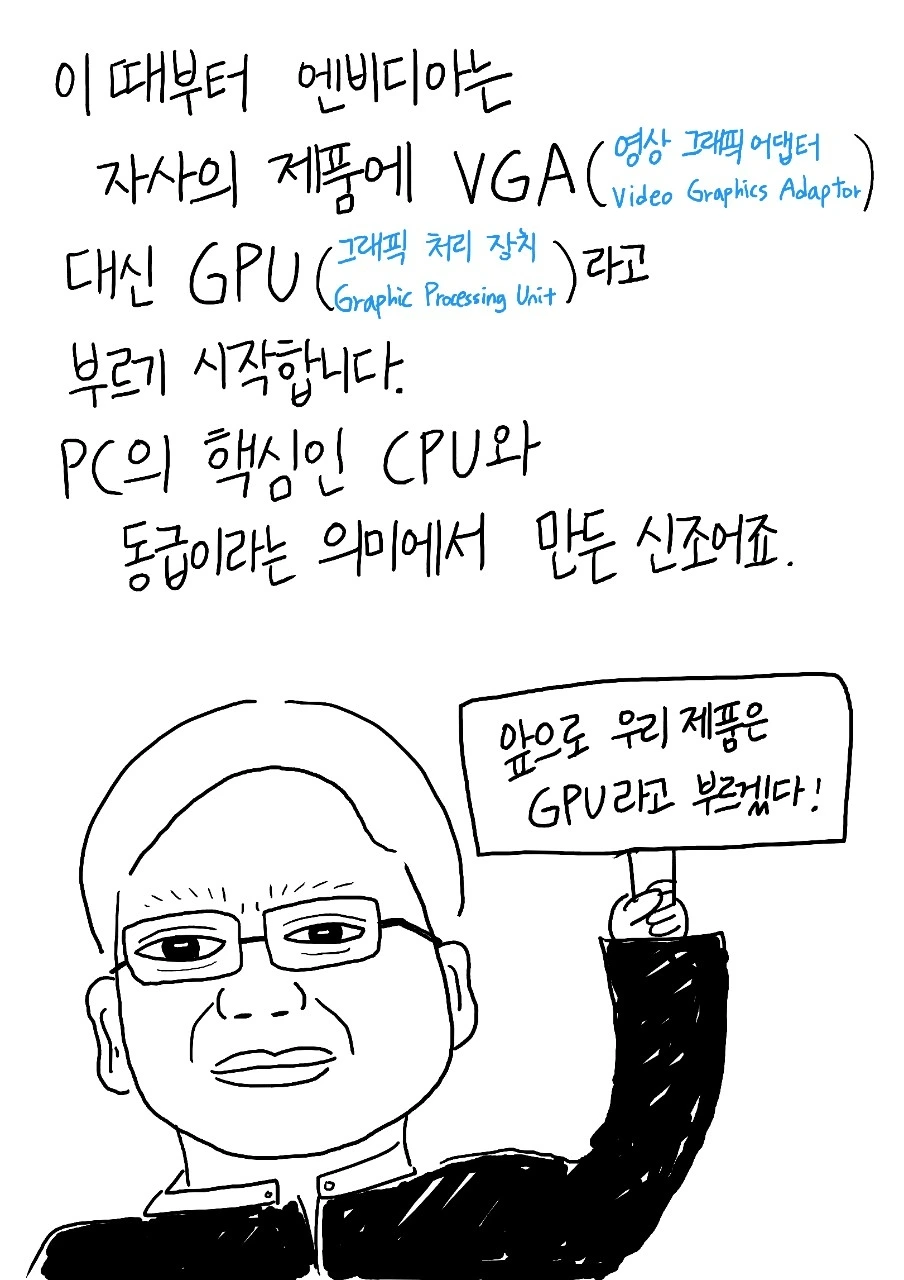 이 때부터 엔비디아는
자사의 제품에 VGA(영상 그래픽 어댑터
Video Graphics Adaptor)
대신 GPU(그래픽 처리 장치
Graphic Processing Unit)라고
부르기 시작합니다.
PC의 핵심인 CPU와
동급이라는 의미에서 만든 신조어죠.
앞으로 우리 제품은
GPU라고 부르겠다!